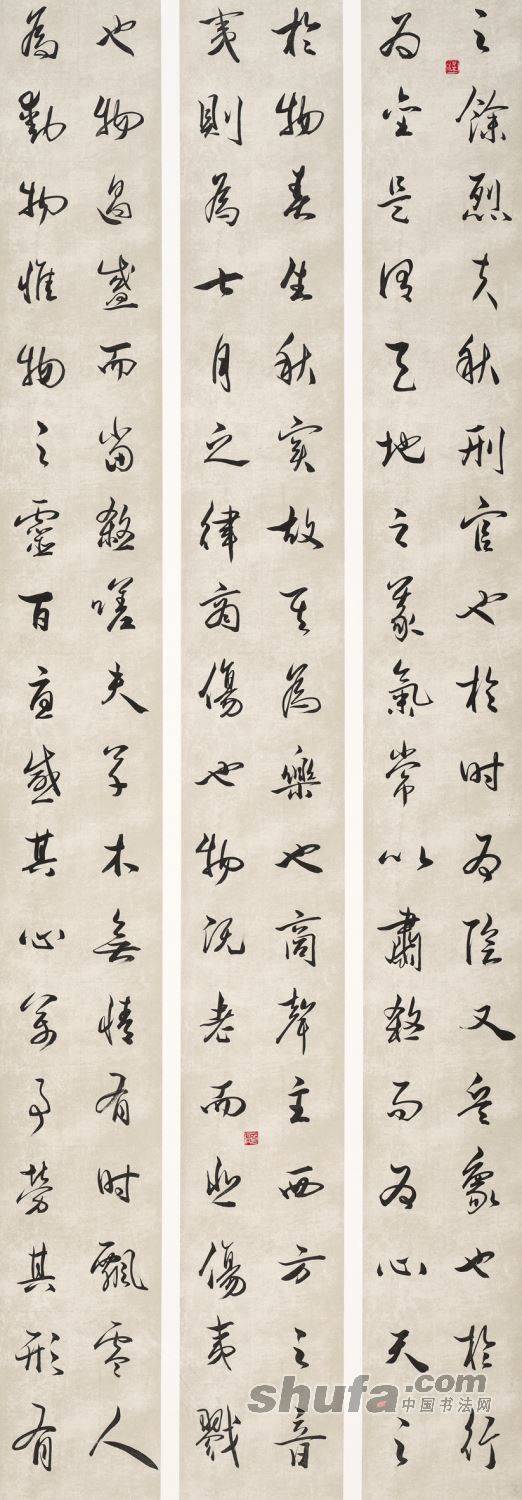 之餘烈夫秋刑官也於时为陰又兵象也於行
为金是謂天地之義氣常以肅殺而为心天之
於物春生秋實故其為樂也商聲主西方之音
夷則為七月之律商傷也物既老而悲傷夷戮
也物過盛而當殺嗟夫草木無情有时飄零人
為動物惟物之靈百憂感其心萬事勞其形有
shufa.com
中国书法网